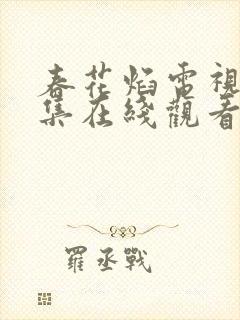 春花焰電視
集在綫觀看
羅丞戰